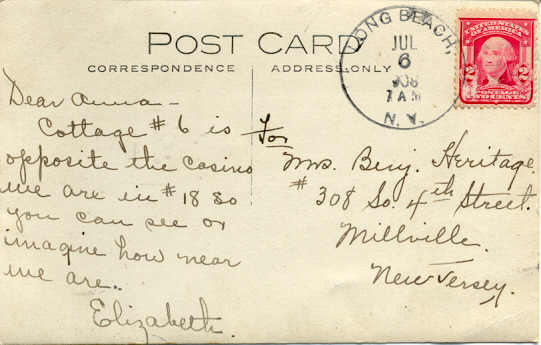 POST CARD
CORRESPONDENCE
ADDRESS ONLY
LONG BEACH,
JUL
6
1908
7 AM
N. Y.
UNITED STATES
OF AMERICA
2 2
POSTAGE
TWO CENTS
Dear Anna -
Cottage # 6 is
opposite the casino
we are in # 18 so
you can see or
imagine how near
we are..
Elizabeth.
For
Mrs. Benj. Heritage.
# 308 So. 4th Street.
Millville.
New Jersey.